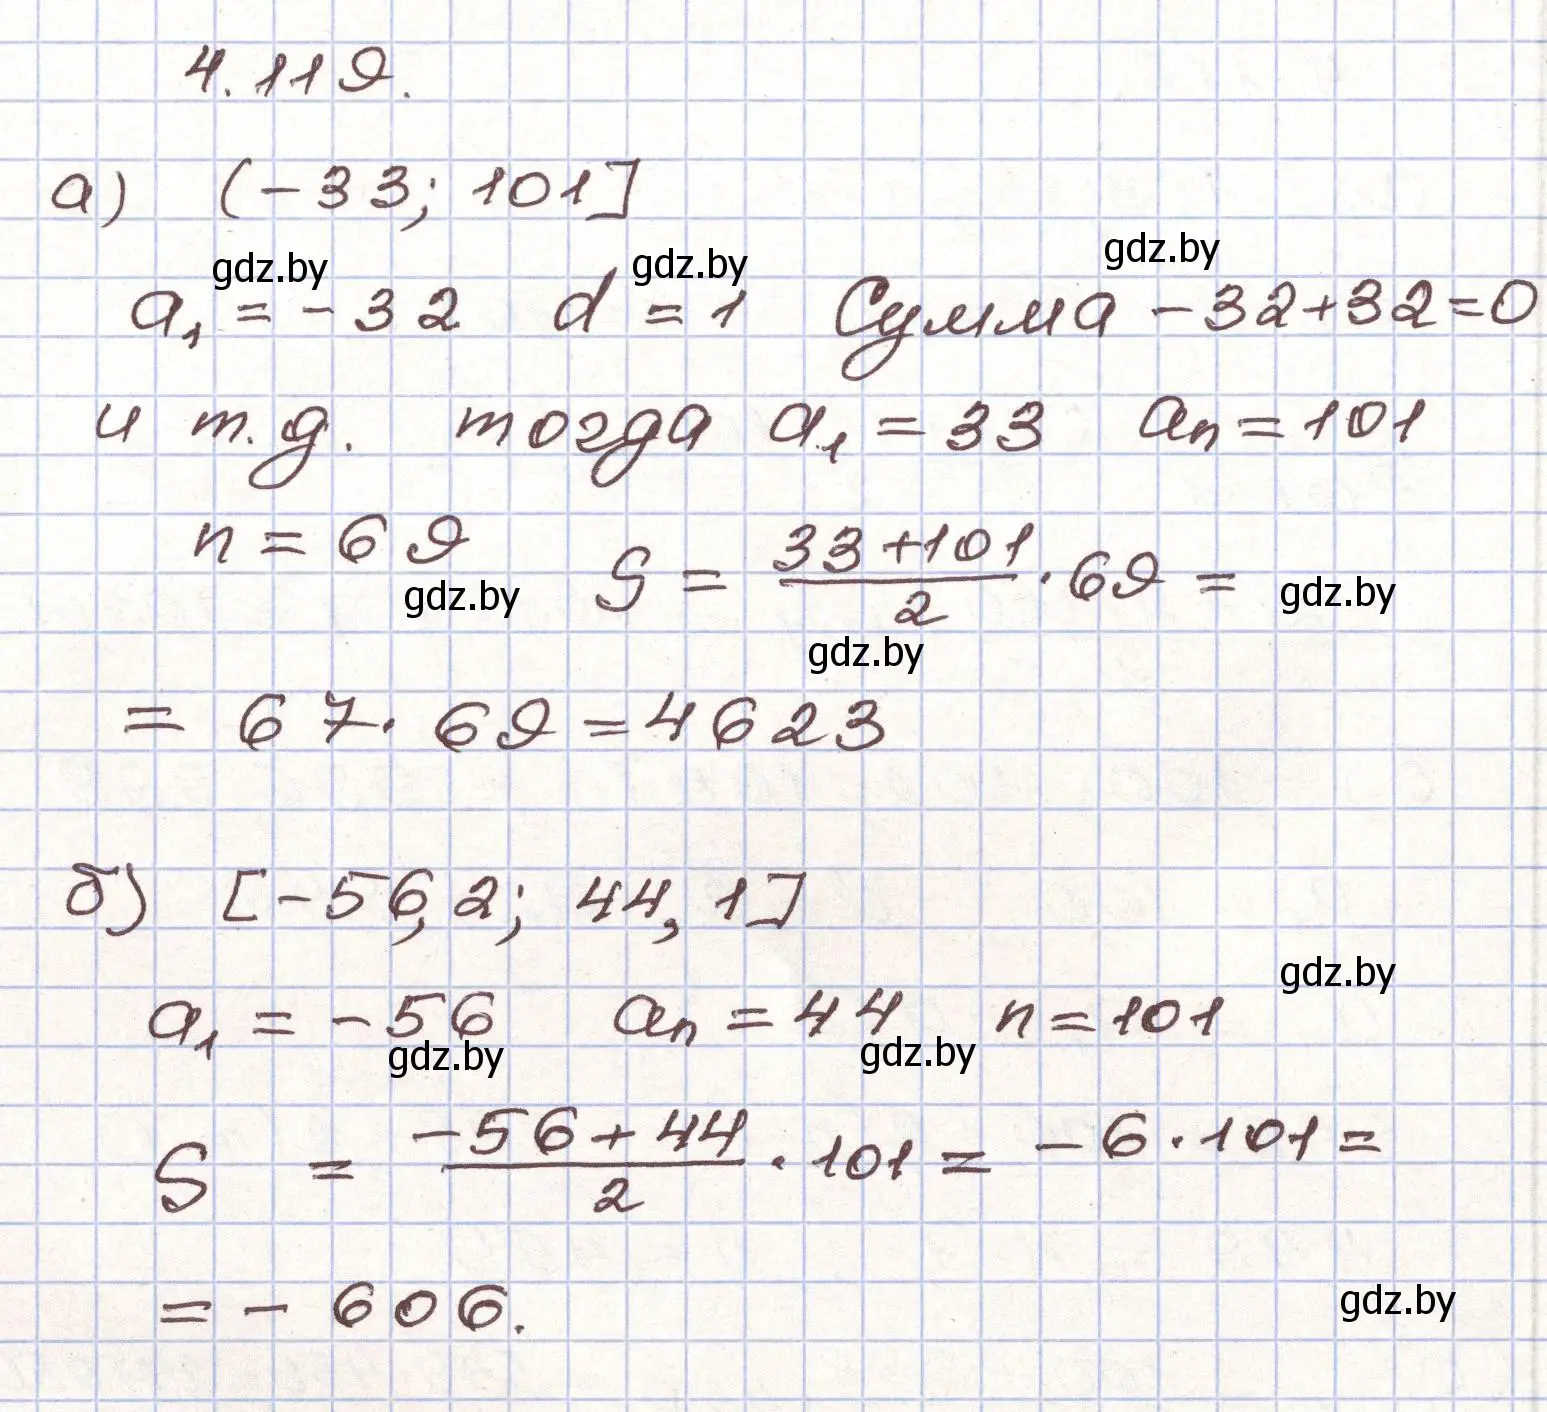 4.119.
а) (-33; 101]
gdz.by gdz.by gdz.by
a₁ = -32 d = 1 Сумма -32+32=0
и т.д. тогда a₁ = 33 aₙ = 101
n = 69 S = (33+101)/2 · 69 =
gdz.by gdz.by
gdz.by
= 67 · 69 = 4623
б) [-56,2; 44,1]
gdz.by
a₁ = -56 aₙ = 44 n = 101
gdz.by gdz.by
S = (-56+44)/2 · 101 = -6 · 101 =
= - 606.
gdz.by